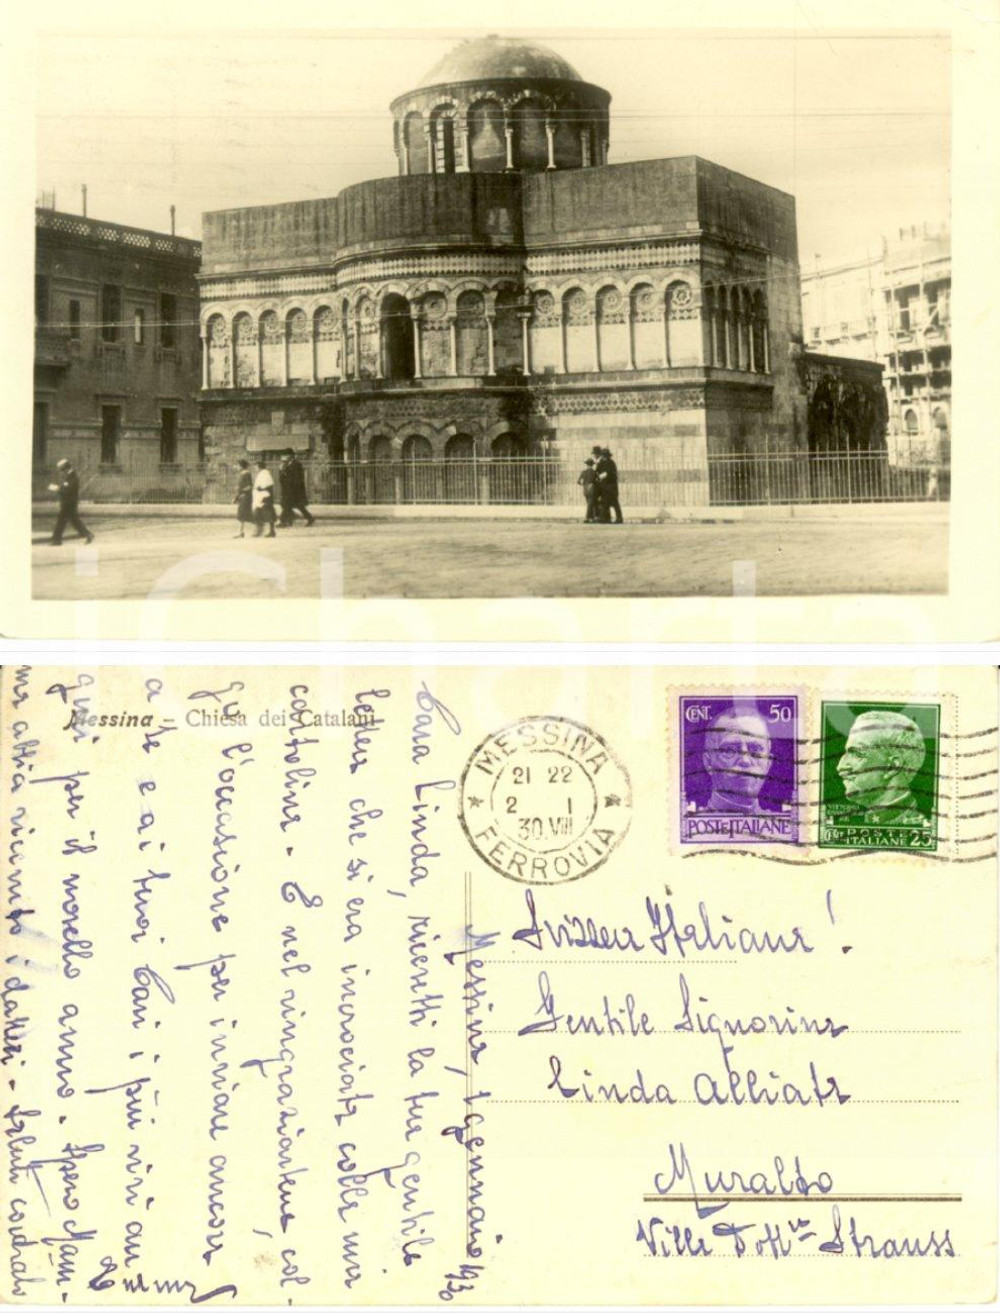 iCharta
Messina - Chiesa dei Catalani
Messina, 1 gennaio 1930
Cara Linda, ricevetti la tua gentile
letter che si era incrociata colla mia
cartolina. E nel ringraziartene col
go l'occasione per inviare ancora
a te e ai tuoi Cari i più vivi au
guri per il novello anno. Spero Mam-
ma abbia ricevuto i datteri. Saluti cordiali
MESSINA
21 22
2 1
30.VIII
FERROVIA
CENT. 50
POSTE ITALIANE
CENT. 25
POSTE
ITALIANE
Svizzera Italiana!
Gentile Signorina
Linda Alliata
Muralto
Villa Dott. Strauss